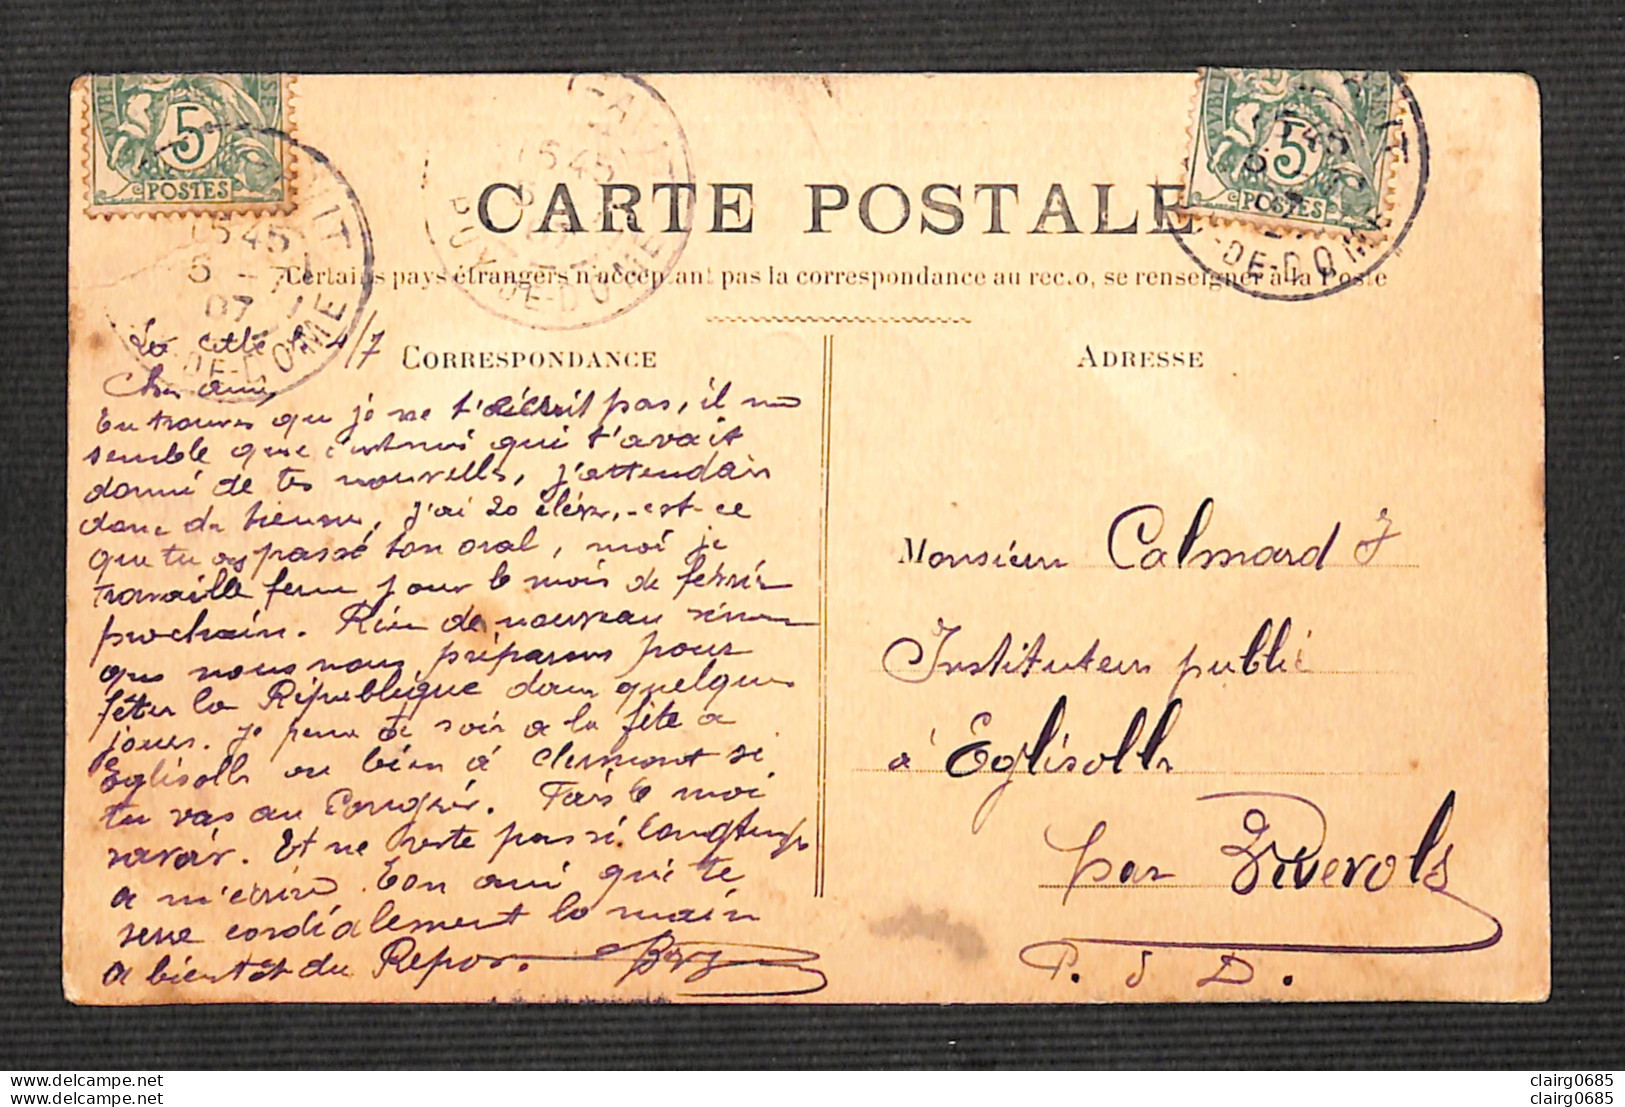 5
POSTES
5
POSTES
15 45
5 - 7
07
DE-DOME
15 45
PUY-DE-DOME
45
-DE-DOME
CARTE POSTALE
Certains pays étrangers n'acceptant pas la correspondance au recto, se renseigner à la Poste
CORRESPONDANCE
4/7
Cher ami,
tu trouves que je ne t'écrit pas, il me
semble que c'est moi qui t'avait
donné de tes nouvelles, j'attendais
donc de tienne, j'ai 20 élèves, est-ce
que tu as passé ton oral, moi je
travaille ferme pour le mois de février
prochain. Rien de nouveau sinon
que nous nous préparons pour
fêter la République dans quelques
jours. Je pense te voir a la fête a
Eglisolles ou bien à Clermont si
tu vas au Congrès. Fais le moi
savoir. Et ne reste pas si longtemps
a m'écrire. Ton ami qui te
serre cordialement la main
a bientôt du Repos.
ADRESSE
Monsieur Calmard J
Instituteur public
à Eglisolles
par Viverols
P. d D.
clairg0685
clairg0685
clairg0685
clairg0685